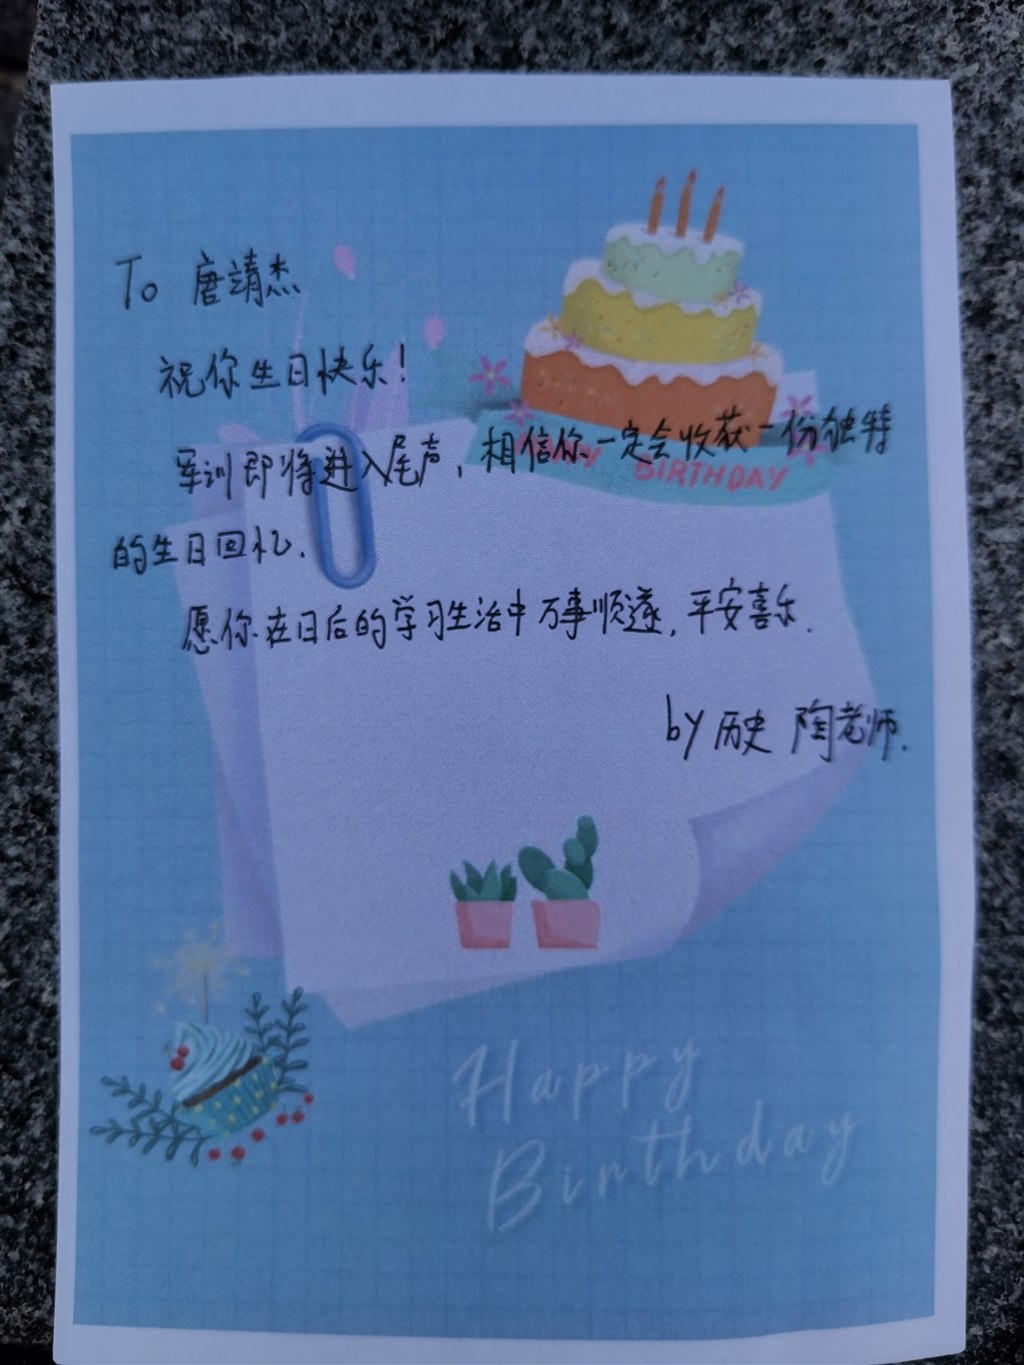 To 唐靖杰
祝你生日快乐!
军训即将进入尾声,相信你一定会收获一份独特
BIRTHDAY
的生日回忆.
愿你在日后的学习生活中万事顺遂,平安喜乐.
by 历史 陶老师.
Happy
Birthday